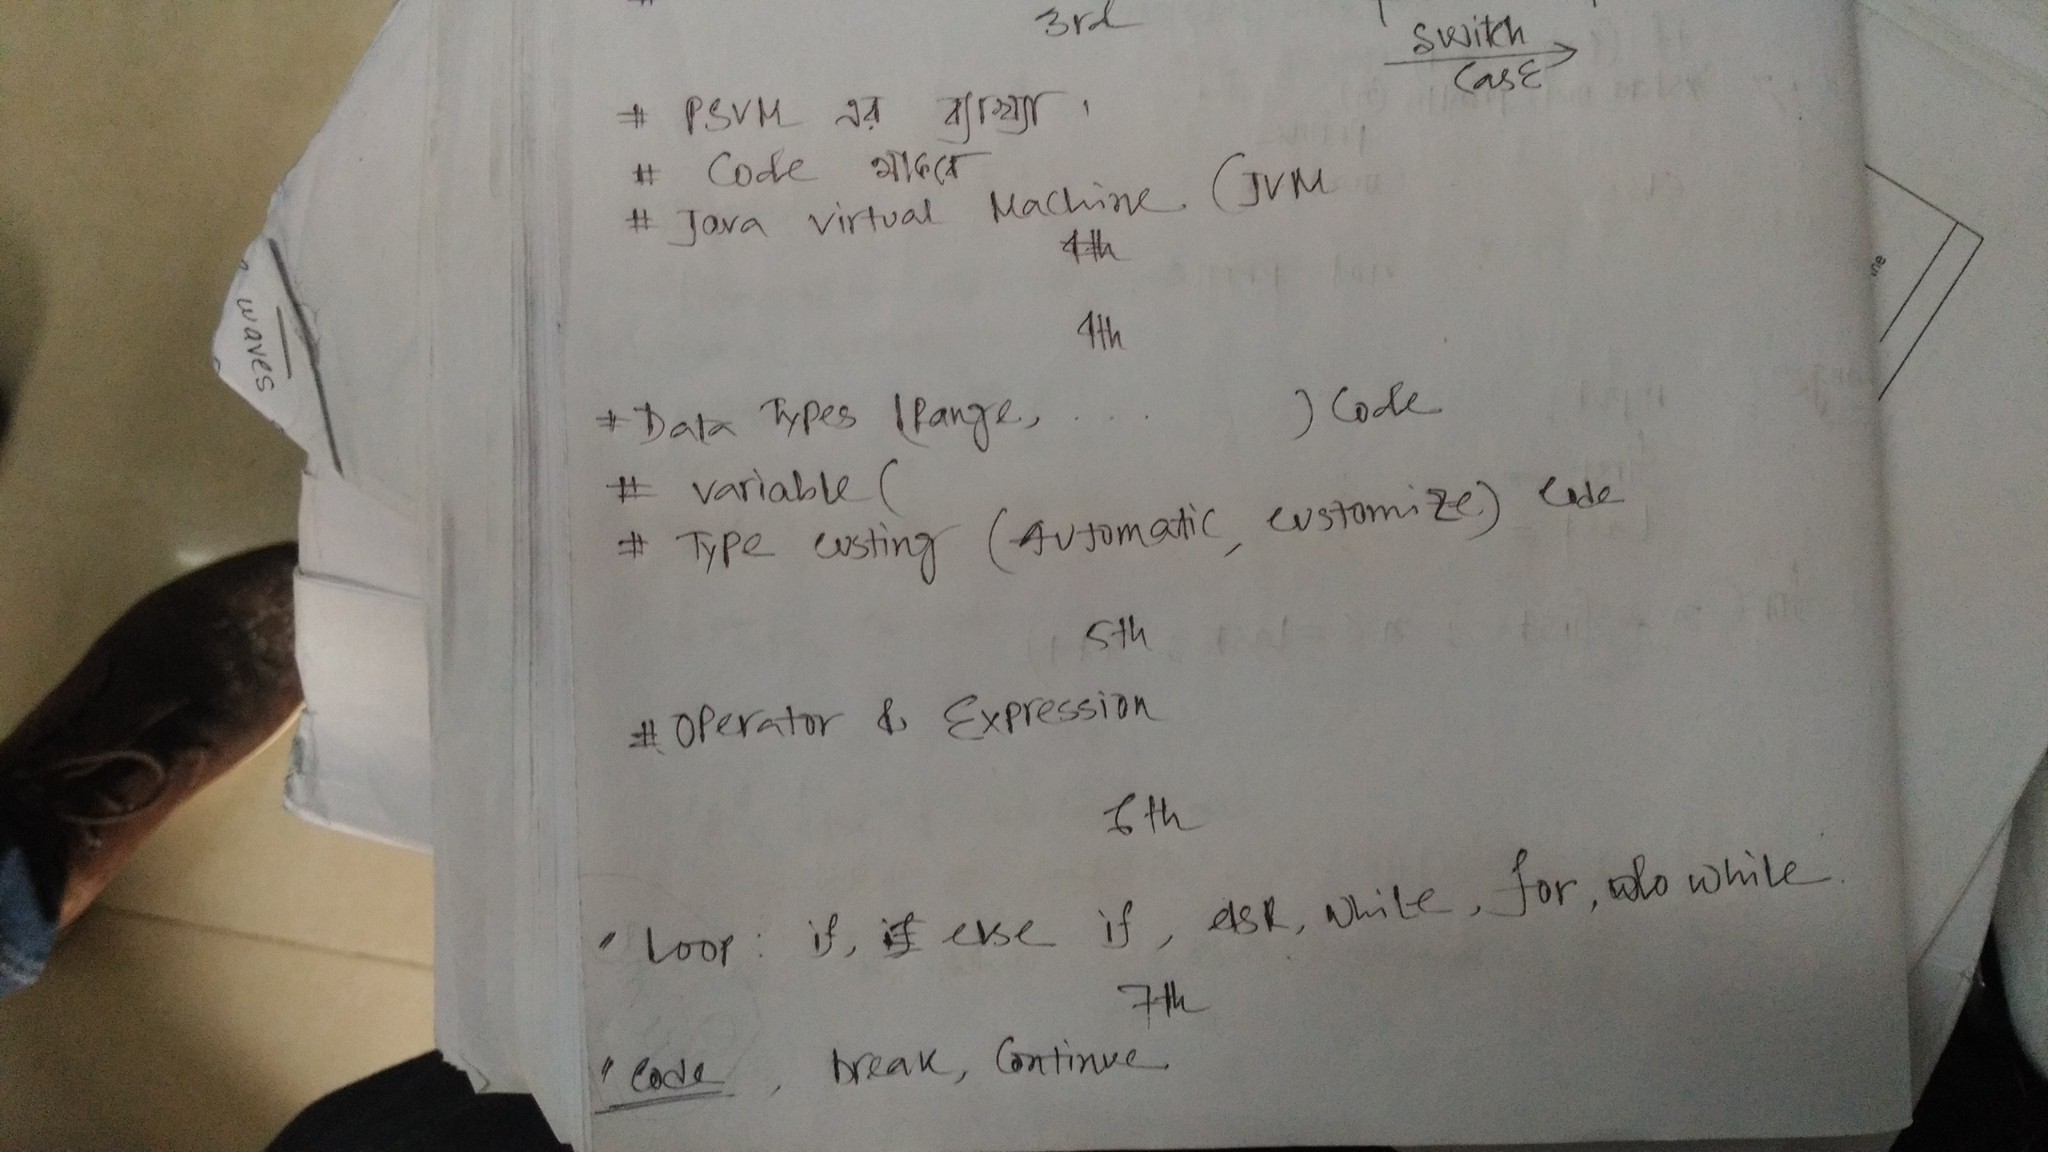 3rd
switch
case
# PSVM এর ব্যাখ্যা ।
# Code থাকবে
# Java virtual Machine. (JVM
4th
4th
# Data Types (Range, . . . . ) Code
# variable (
# Type custing (Automatic, customize) code
5th
# Operator & Expression
6th
" Loop: if, if else if, else, while, for, do while.
7th
" Code, break, Continue.
waves